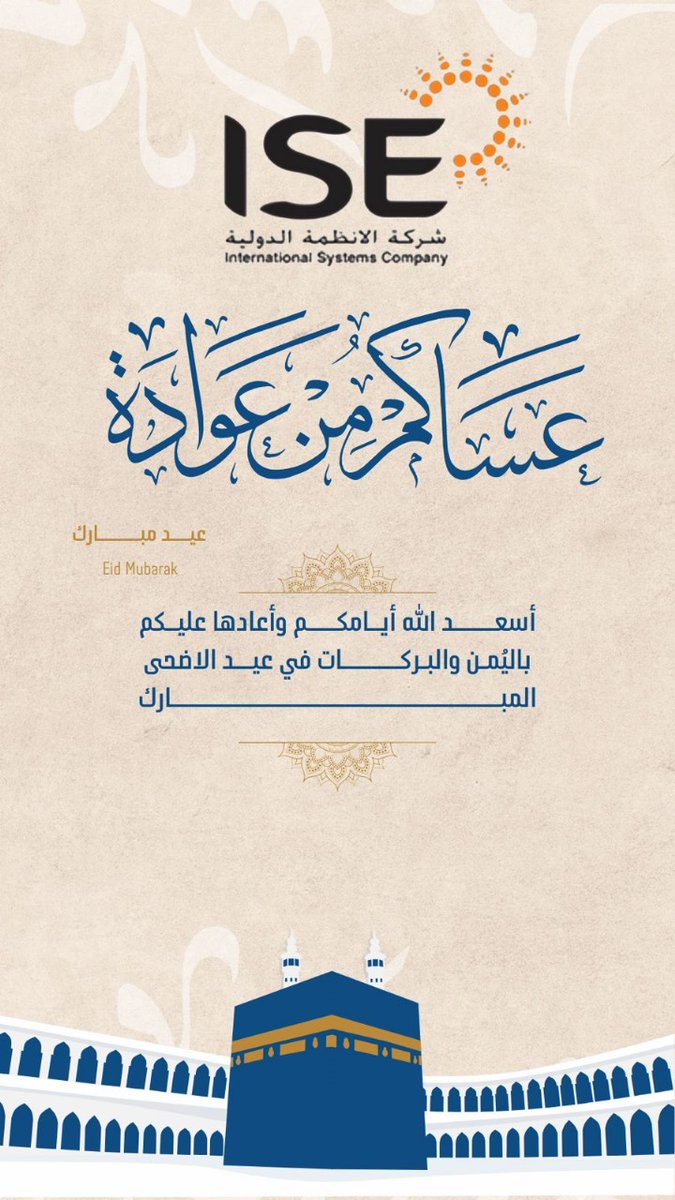 ISE
شركة الانظمة الدولية
International Systems Company
عَسَاكُم مِنْ عُوَادَة
عيد مبارك
Eid Mubarak
أسعد الله أيامكم وأعادها عليكم
باليُمن والبركات في عيد الاضحى
المبارك